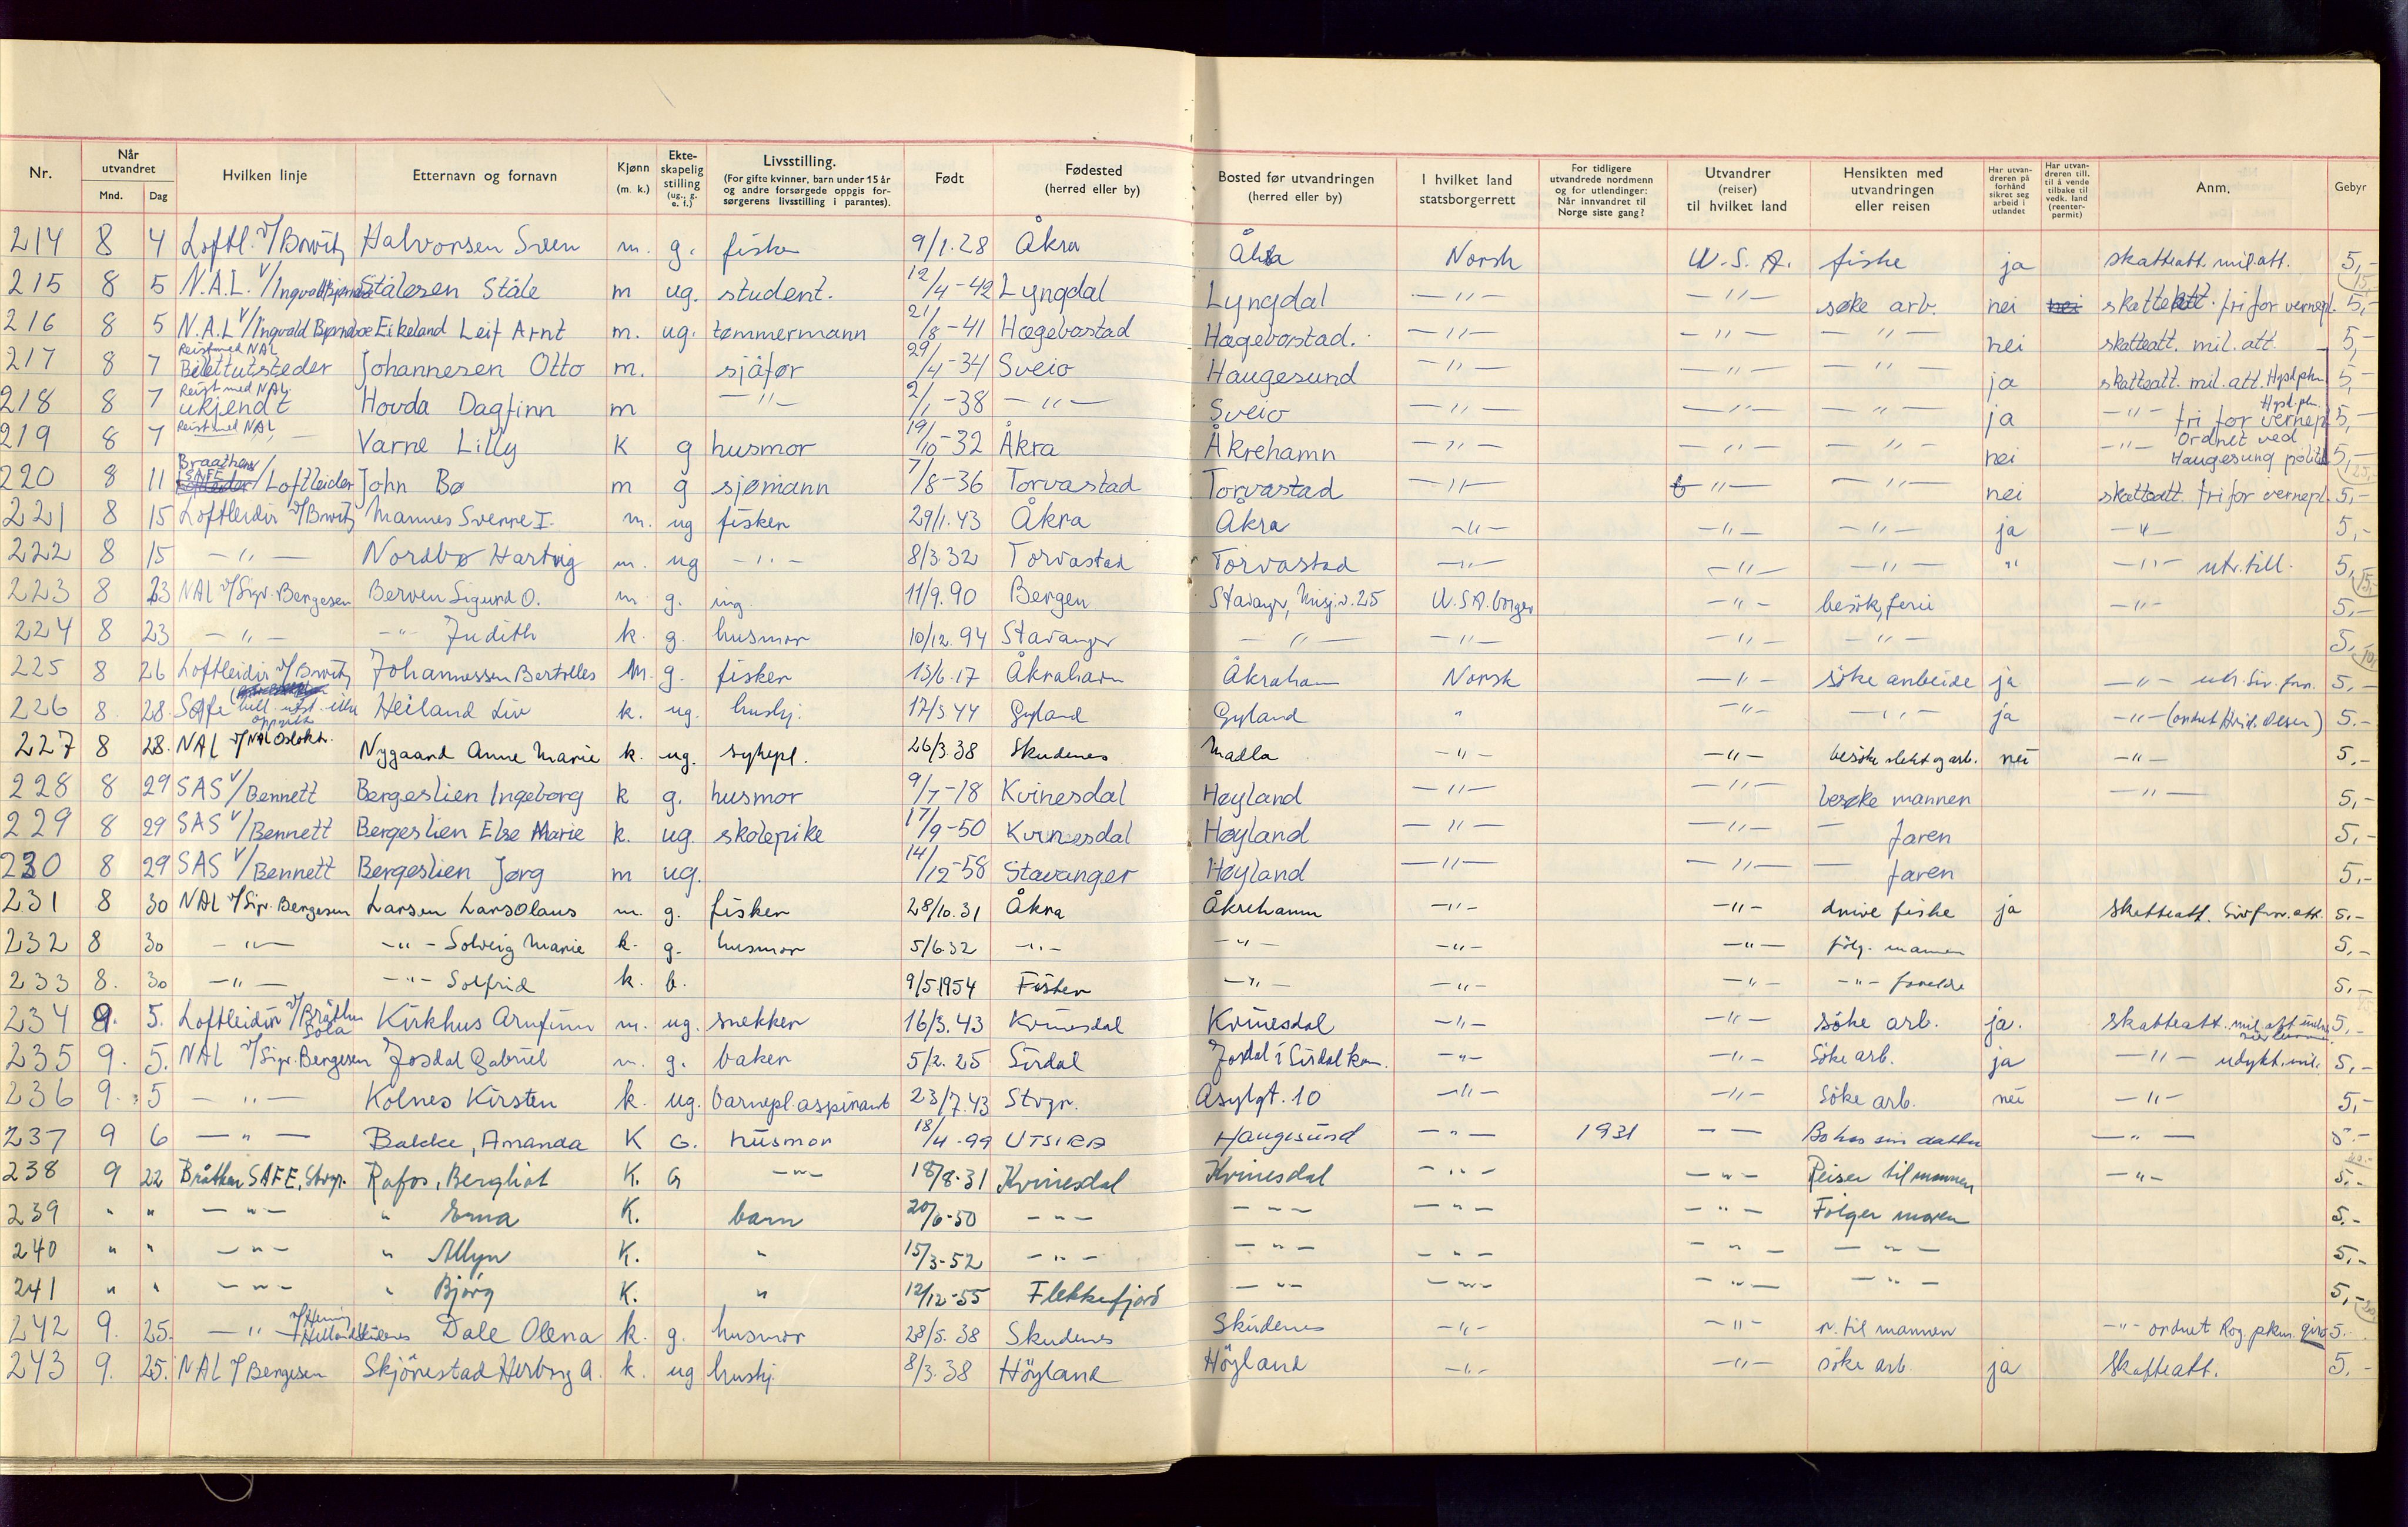 Nr. | Når utvandret Mnd. Dag | Hvilken linje | Etternavn og fornavn | Kjønn (m. k.) | Ekteskapelig stilling (ug., g. e. f.) | Livsstilling. (For gifte kvinner, barn under 15 år og andre forsørgede oppgis forsørgerens livsstilling i parantes). | Født | Fødested (herred eller by) | Bosted før utvandringen (herred eller by) | I hvilket land statsborgerrett | For tidligere utvandrede nordmenn og for utlendinger: Når innvandret til Norge siste gang? | Utvandrer (reiser) til hvilket land | Hensikten med utvandringen eller reisen | Har utvandreren på forhånd sikret seg arbeid i utlandet | Har utvandreren till. til å vende tilbake til vedk. land (reenterpermit) | Anm. | Gebyr
214 8 4 Loftl. v/Browitz Halvorsen Sven m. g. fisker 9/1.28 Åkra Åkra Norsk U.S.A. fiske ja skatteatt. mil.att. 5,-
215 8 5 N.A.L. v/Ingvald Bjørnebo Stålesen Ståle m ug. student. 12/4-42 Lyngdal Lyngdal -"- -"- søke arb. nei nei skatteatt. fri for vernepl. 5,-
216 8 5 N.A.L v/Ingvald Bjørnebo Eikeland Leif Arnt m. ug. tømmermann 21/8-41 Hægebostad Hægebostad. -"- -"- -"- nei skatteatt. mil. att. 5,-
217 8 7 Reist med NAL Billettutsteder Johannesen Otto m. sjåfør 29/4-34 Sveio Haugesund -"- -"- -"- ja skatteatt. mil. att. Hgsd pkm 5,-
218 8 7 Reist med NAL. ukjendt Hovda Dagfinn m -"- 2/1-38 -"- Sveio -"- -"- -"- ja -"- fri for vernepl. Hgsd. pkm. 5,-
219 8 7 Reist med NAL - Varne Lilly K g husmor 19/10-32 Åkra Åkrehamn -"- -"- -"- nei -"- Ordnet ved Haugesund politi 5,-
220 8 11 Braathens SAFE/Loftleider John Bø m g sjømann 7/8-36 Torvastad Torvastad -"- -"- -"- nei skatteatt. fri for vernepl. 5,-
221 8 15 Loftleidir v/Browitz Mannes Sverre I. m. ug fisker 29/1.43 Åkra Åkra -"- -"- -"- ja -"- 5,-
222 8 15 -"- Nordbø Hartvig m. ug -"- 8/3.32 Torvastad Torvastad -"- -"- -"- " -"- utr.till. 5,-
223 8 23 NAL v/Sigv. Bergesen Berven Sigurd O. m g. ing 11/9.90 Bergen Stavangr, Misj.v. 25 U.S.A. borger -"- besök, ferie -"- 5,-
224 8 23 -"- -"- Judith k. g. husmor 10/12.94 Stavanger -"- -"- -"- -"- 5,-
225 8 26 Loftleidir v/Browitz Johannessen Bertelles M. g. fisker 13/6.17 Åkrahamn Åkrahamn Norsk -"- söke arbeide ja -"- utr. Siv. forsv. 5,-
226 8. 28. Safe (bill. utst. ikke oppgitt Heiland Liv k. ug. hushj. 17/3 44 Gyland Gyland " -"- -"- ja -"- (ordnet Hvid. Olsen) 5.-
227 8 28. NAL v/NAL Oslokt. Nygaard Anne Marie k. ug. sykepl. 26/3.38 Skudenes Madla -"- -"- besöke slekt og arb. nei -"- 5,-
228 8 29 SAS v/Bennett Bergeslien Ingeborg k g. husmor 9/7-18 Kvinesdal Høyland -"- -"- besøke mannen -"- 5,-
229 8 29 SAS v/Bennett Bergeslien Else Marie k. ug. skolepike 17/9-50 Kvinesdal Høyland -"- -"- - faren 5,-
230 8 29 SAS v/Bennett Bergeslien Jørg m ug. 14/12-58 Stavanger Høyland -"- -"- - faren 5,-
231 8 30 NAL v/Sigv. Bergesen Larsen Lars Olaus m. g. fisker 28/10.31 Åkra Åkrehamn -"- -"- drive fiske ja skatteatt. Sivforsv.att. 5,-
232 8 30 -"- -"- Solveig Marie k. g. husmor 5/6.32 -"- -"- -"- -"- følg. mannen 5,-
233 8. 30 -"- -"- Solfrid k. b. 9/5 1954 Fister -"- -"- -"- -"- foreldre 5,-
234 9. 5. Loftleidir v/Bråthen Sola Kirkhus Arnfinn m. ug. snekker 16/3.43 Kvinesdal Kvinesdal -"- -"- söke arb. ja. skatteatt. mil.att 5,-
235 9. 5. NAL v/Sigv. Bergesen Josdal Gabriel m. g. baker 5/2.25 Sirdal Josdal i Sirdal kom. -"- -"- Söke arb. ja -"- udykt. mil. 5,-
236 9. 5 -"- Kolnes Kirsten k. ug. barnepl.aspirant 23/7.43 Stvgr. Asylgt. 10 -"- -"- Söke arb. nei -"- 5,-
237 9 6 -"- Bakke, Amanda K G. husmor 18/4-99 UTSIRA Haugesund -"- 1931 -- Bo hos sin datter -"- 5.-
238 9 22 Bråthen SAFE, Stvgr. Rafos, Bergliot K. G -"- 18/8-31 Kvinesdal Kvinesdal -"- -"- Reiser til mannen -"- 5.-
239 " " -"- " Erna K. barn 20/6-50 -"- -"- -"- -"- Følger moren 5.-
240 " " -"- " Allyn K. " 15/3-52 -"- -"- -"- -"- -"- 5,-
241 " " -"- " Bjørg K. " 12/12-55 Flekkefjord -"- -"- -"- -"- 5,-
242 9. 25. -"- Dale Olena k. g. husmor 28/5.38 Skudenes Skudenes -"- -"- r. til mannen -"- ordnet Rog. pkm. giro 5.-
243 9. 25. NAL v/Bergesen Skjörestad Herborg A. k. ug hushj. 8/3.38 Höyland Höyland -"- -"- söke arb. ja Skatteatt. 5,-